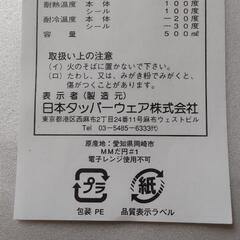 耐熱温度 本体 100度
シール 100度
耐冷温度 本体 −20度
シール −30度
容量 500㎖
取扱い上の注意
(イ) 火のそばに置かないで下さい。
(ロ) たわし、又は、みがき粉でみがくと、
傷がつくことがあります。
表示者(製造元)
日本タッパーウェア株式会社
東京都港区西麻布2丁目24番11号麻布ウェストビル
TEL 03-5485-6333㈹
原産地:愛知県岡崎市
MMだ円#1
電子レンジ使用不可
プラ
紙
包装 PE
品質表示ラベル